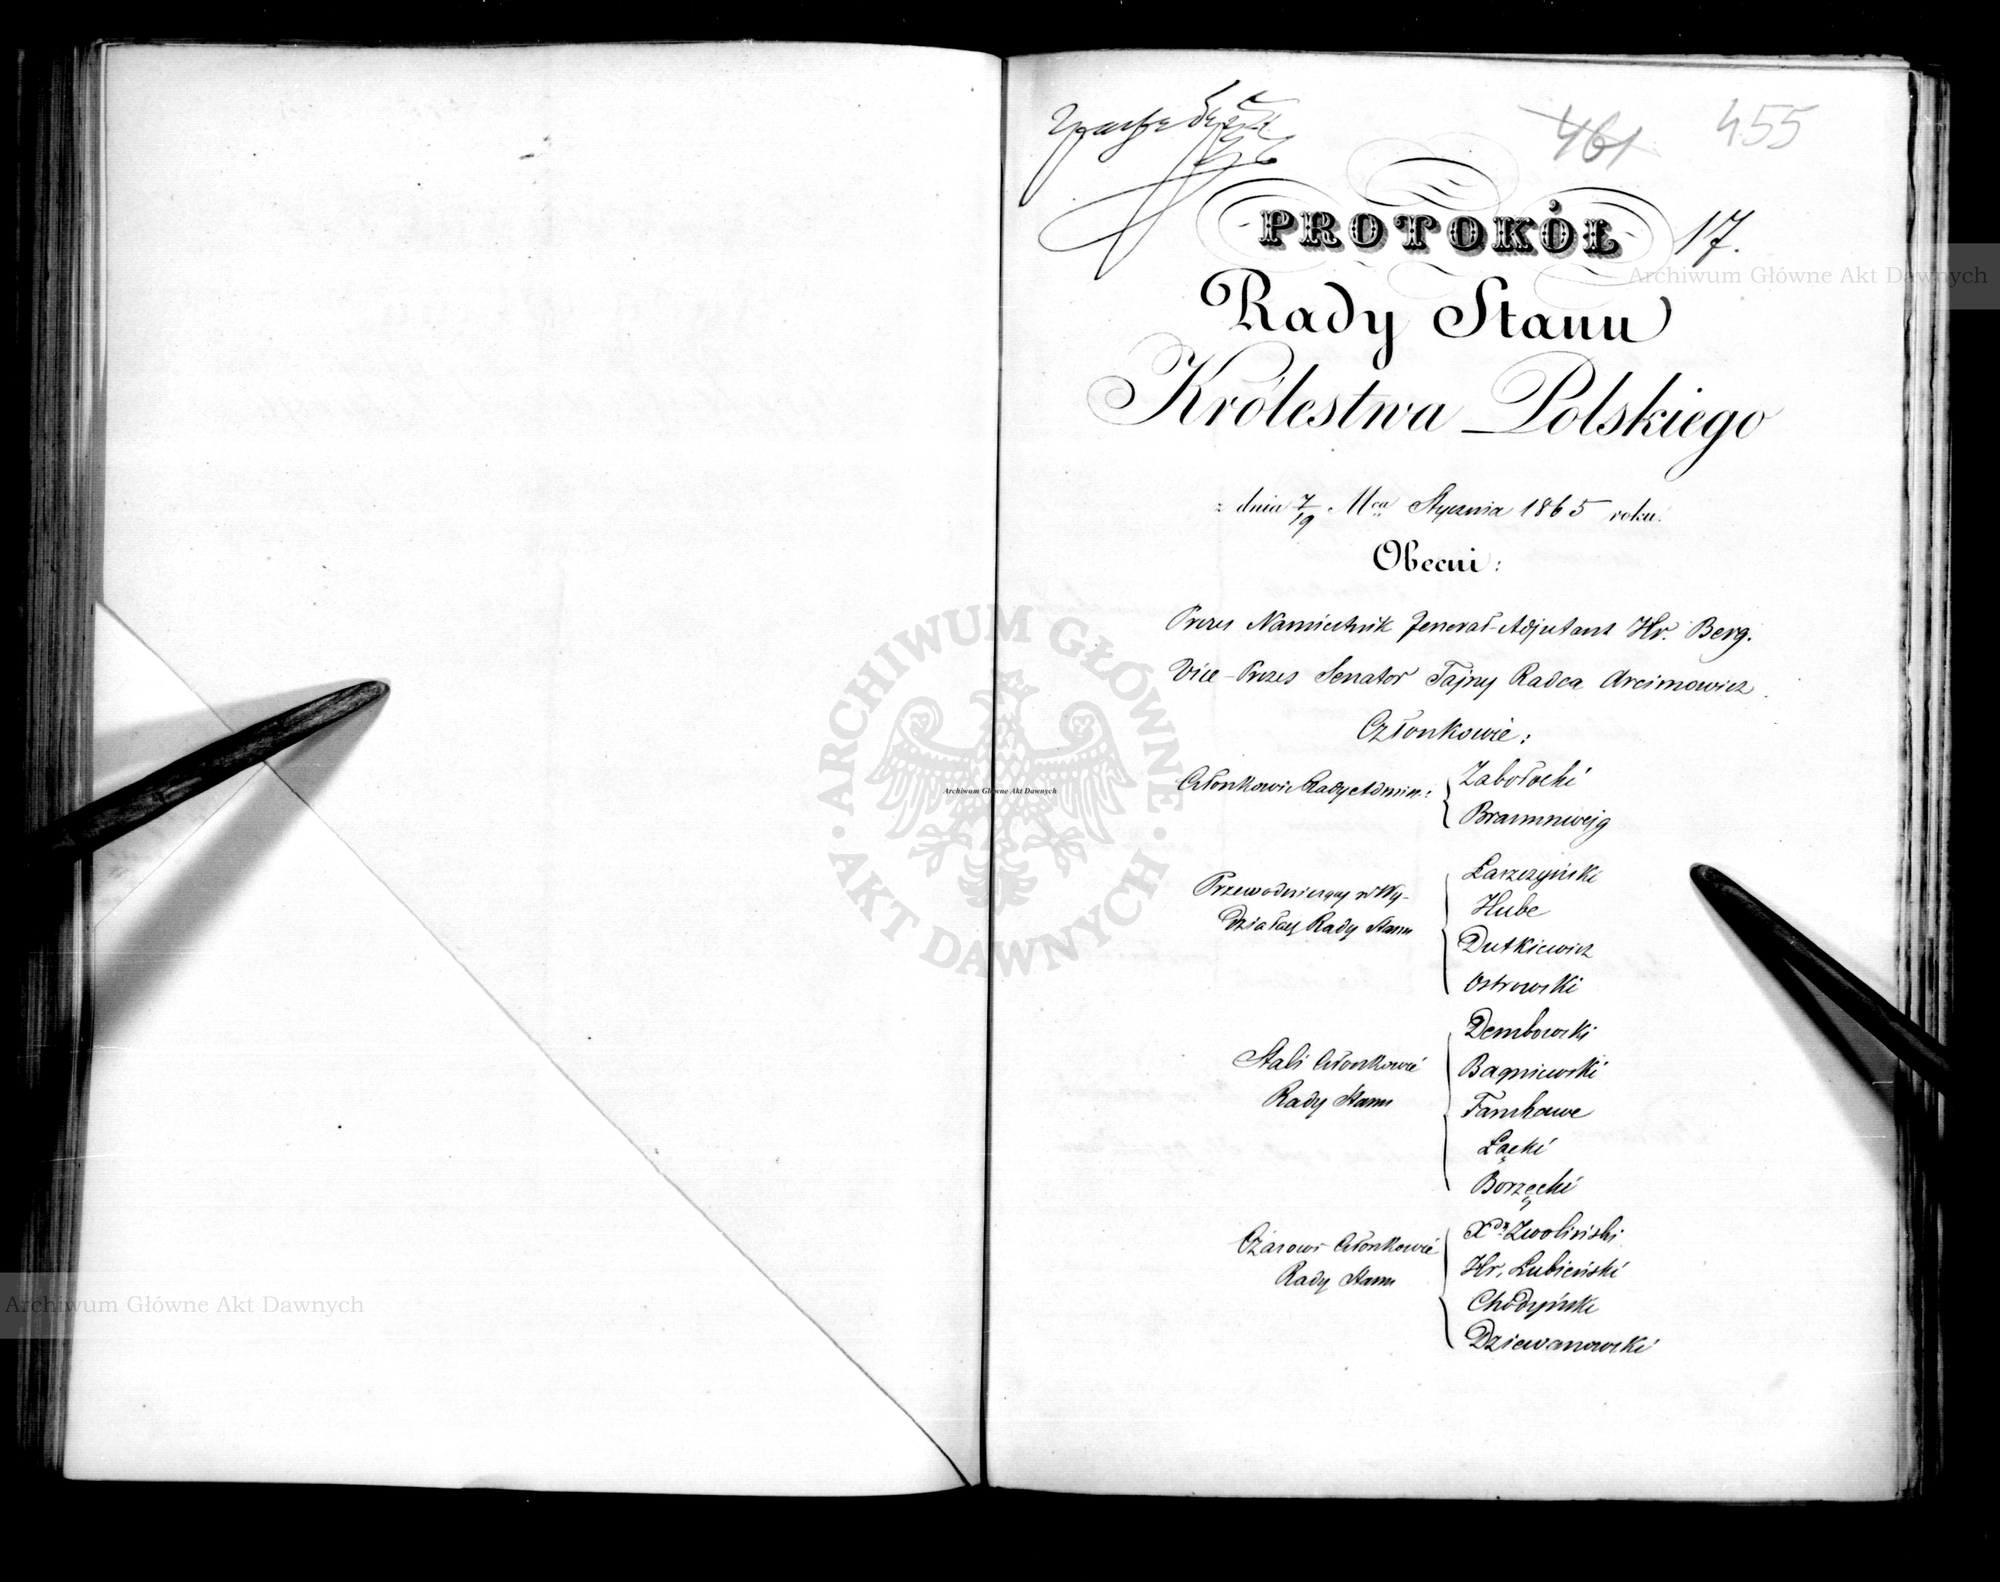 461 455
PROTOKÓŁ 17.
Rady Stanu
Królestwa Polskiego
z dnia 7/19 Mca Stycznia 1865 roku.
Obecni:
Prezes Namiestnik Jenerał-Adjutant Hr. Berg.
Vice-Prezes Senator Tajny Radca Arcimowicz.
Członkowie:
Członkowie Rady Admin.: Zabołocki
Braunnwejg
Przewodniczący w Wy-
działach Rady Stanu
Łaszczyński
Hube
Dutkiewicz
Ostrowski
Stali Członkowie
Rady Stanu
Dembowski
Bagniewski
Fanshawe
Łącki
Borzęcki
Czasowi Członkowie
Rady Stanu
X. Zwoliński
Hr. Łubieński
Chodyński
Dziewanowski
ARCHIWUM GŁÓWNE AKT DAWNYCH
Archiwum Główne Akt Dawnych
Archiwum Główne Akt Dawnych
Archiwum Główne Akt Dawnych